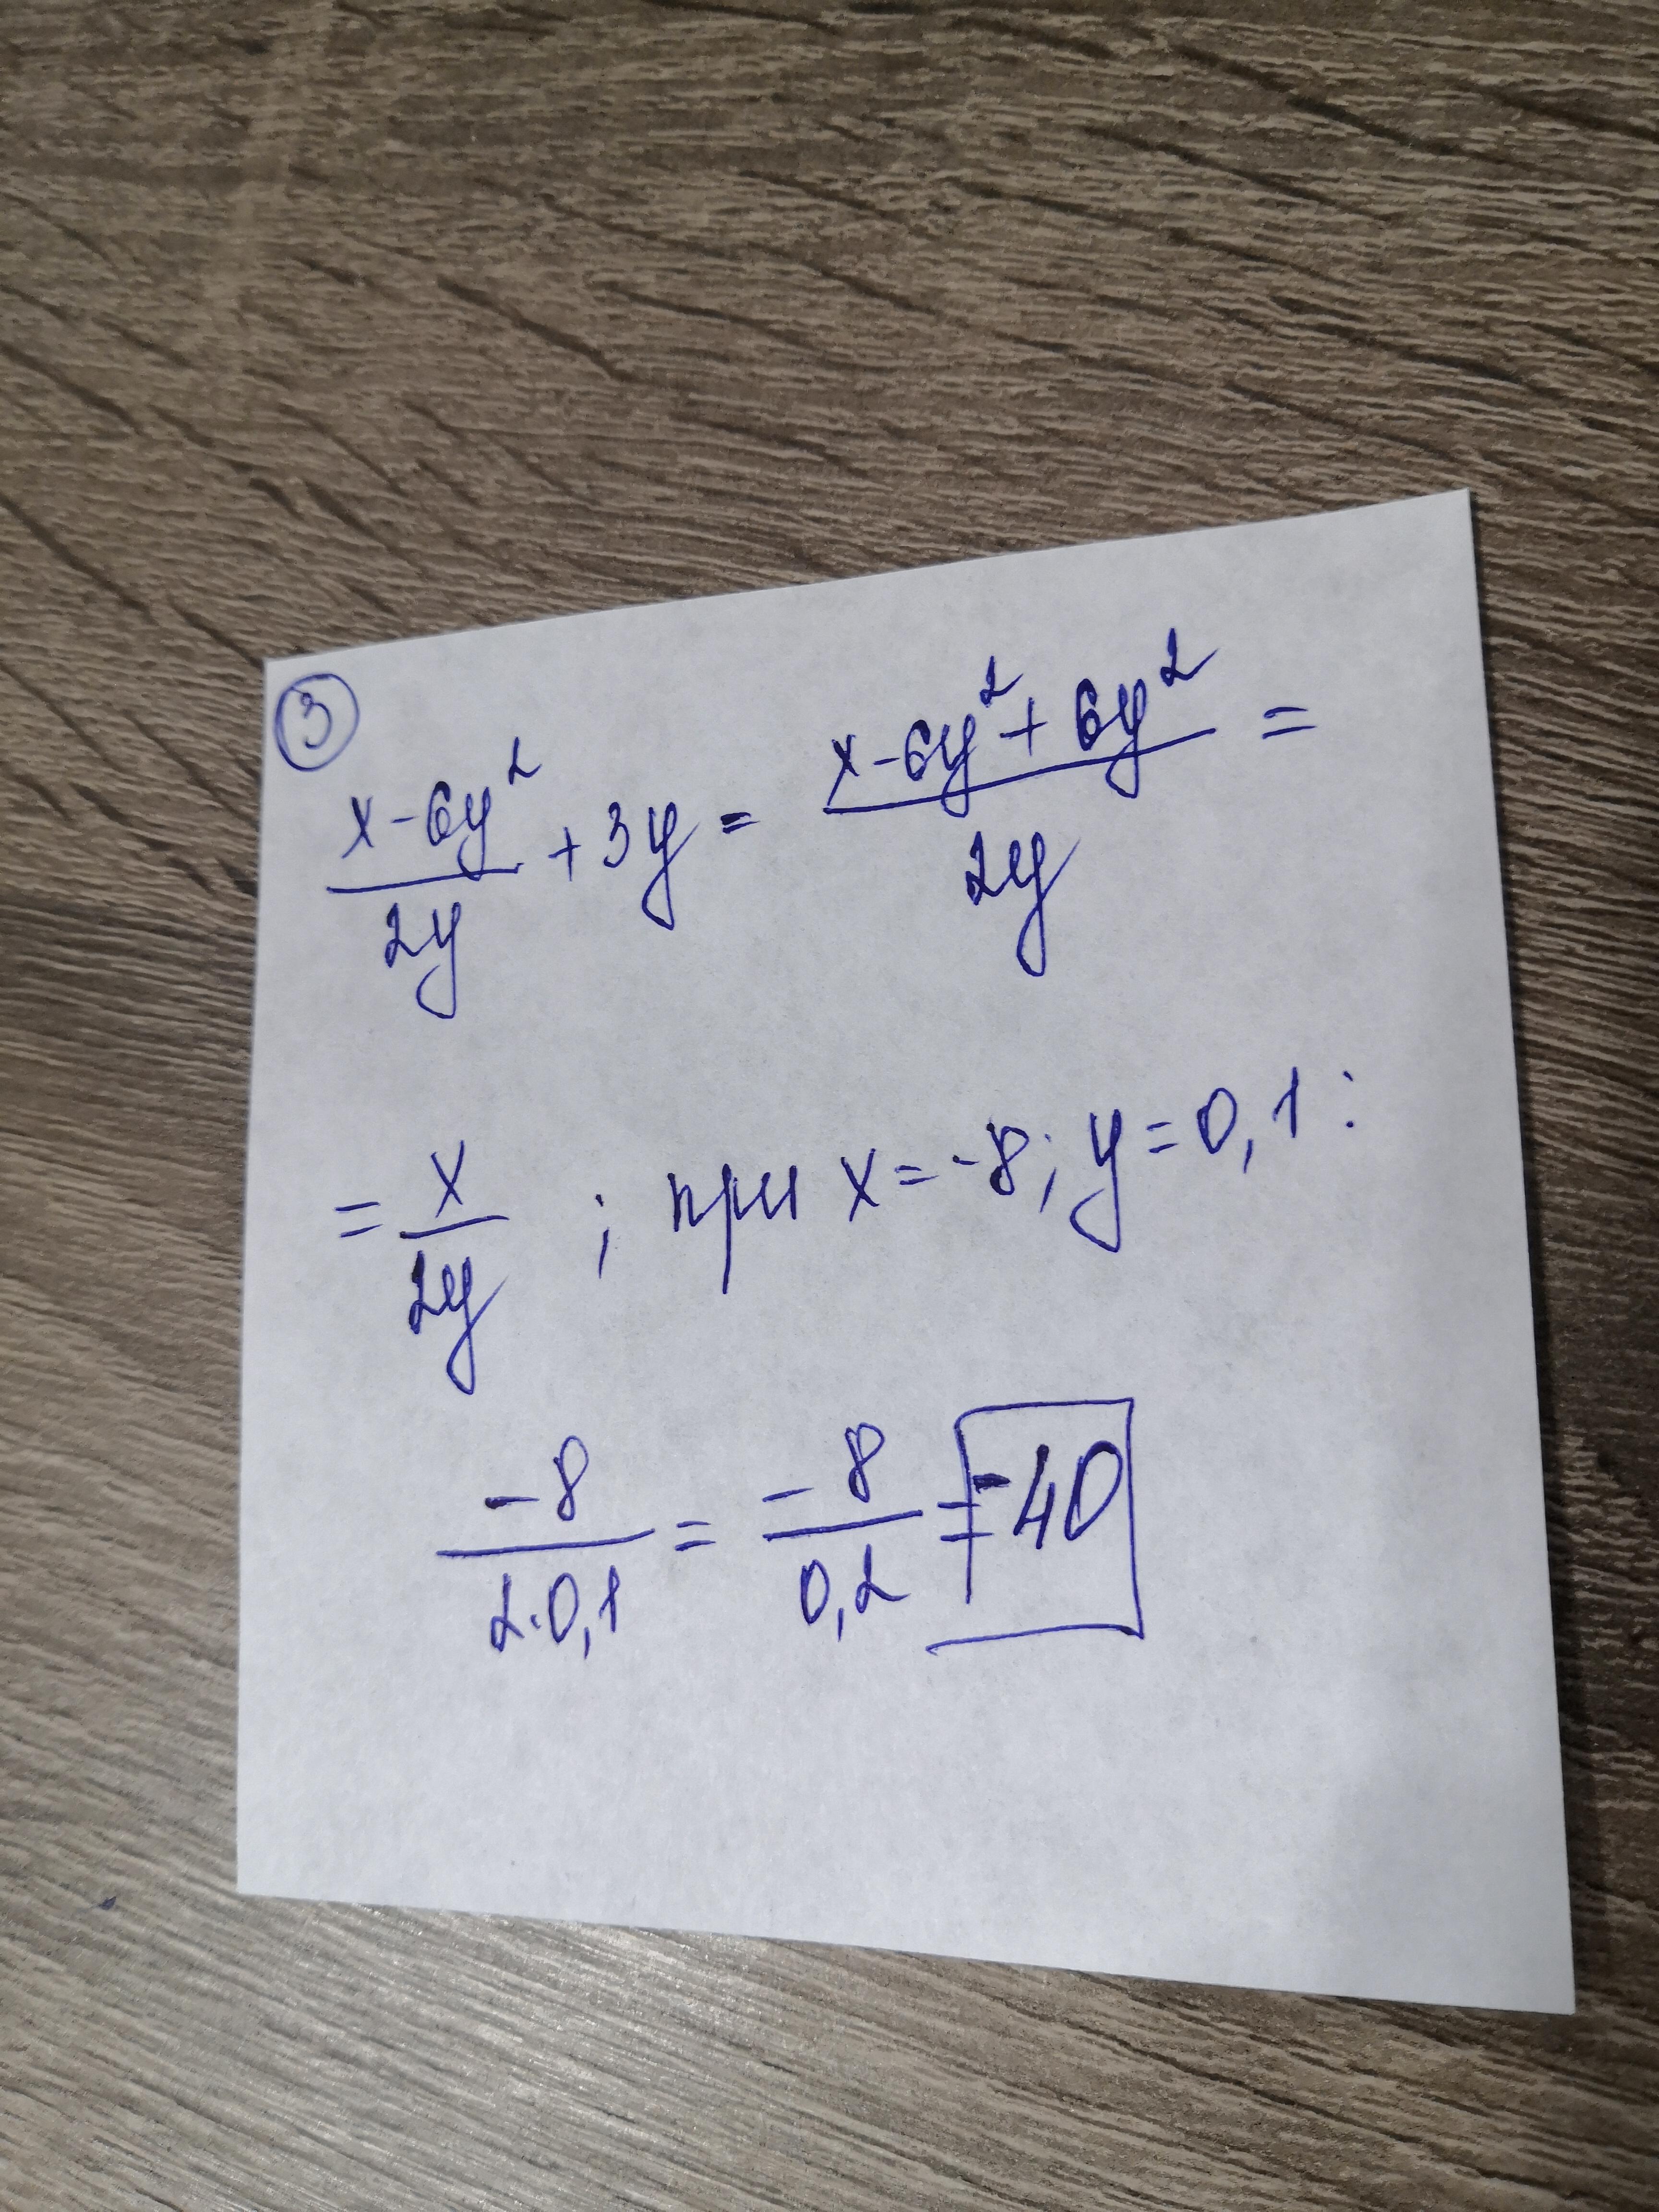 3
(x-6y²)/(2y) + 3y = (x-6y²+6y²)/(2y) =
= x/(2y) ; при x = -8; y = 0,1 :
-8/(2·0,1) = -8/0,2 = -40